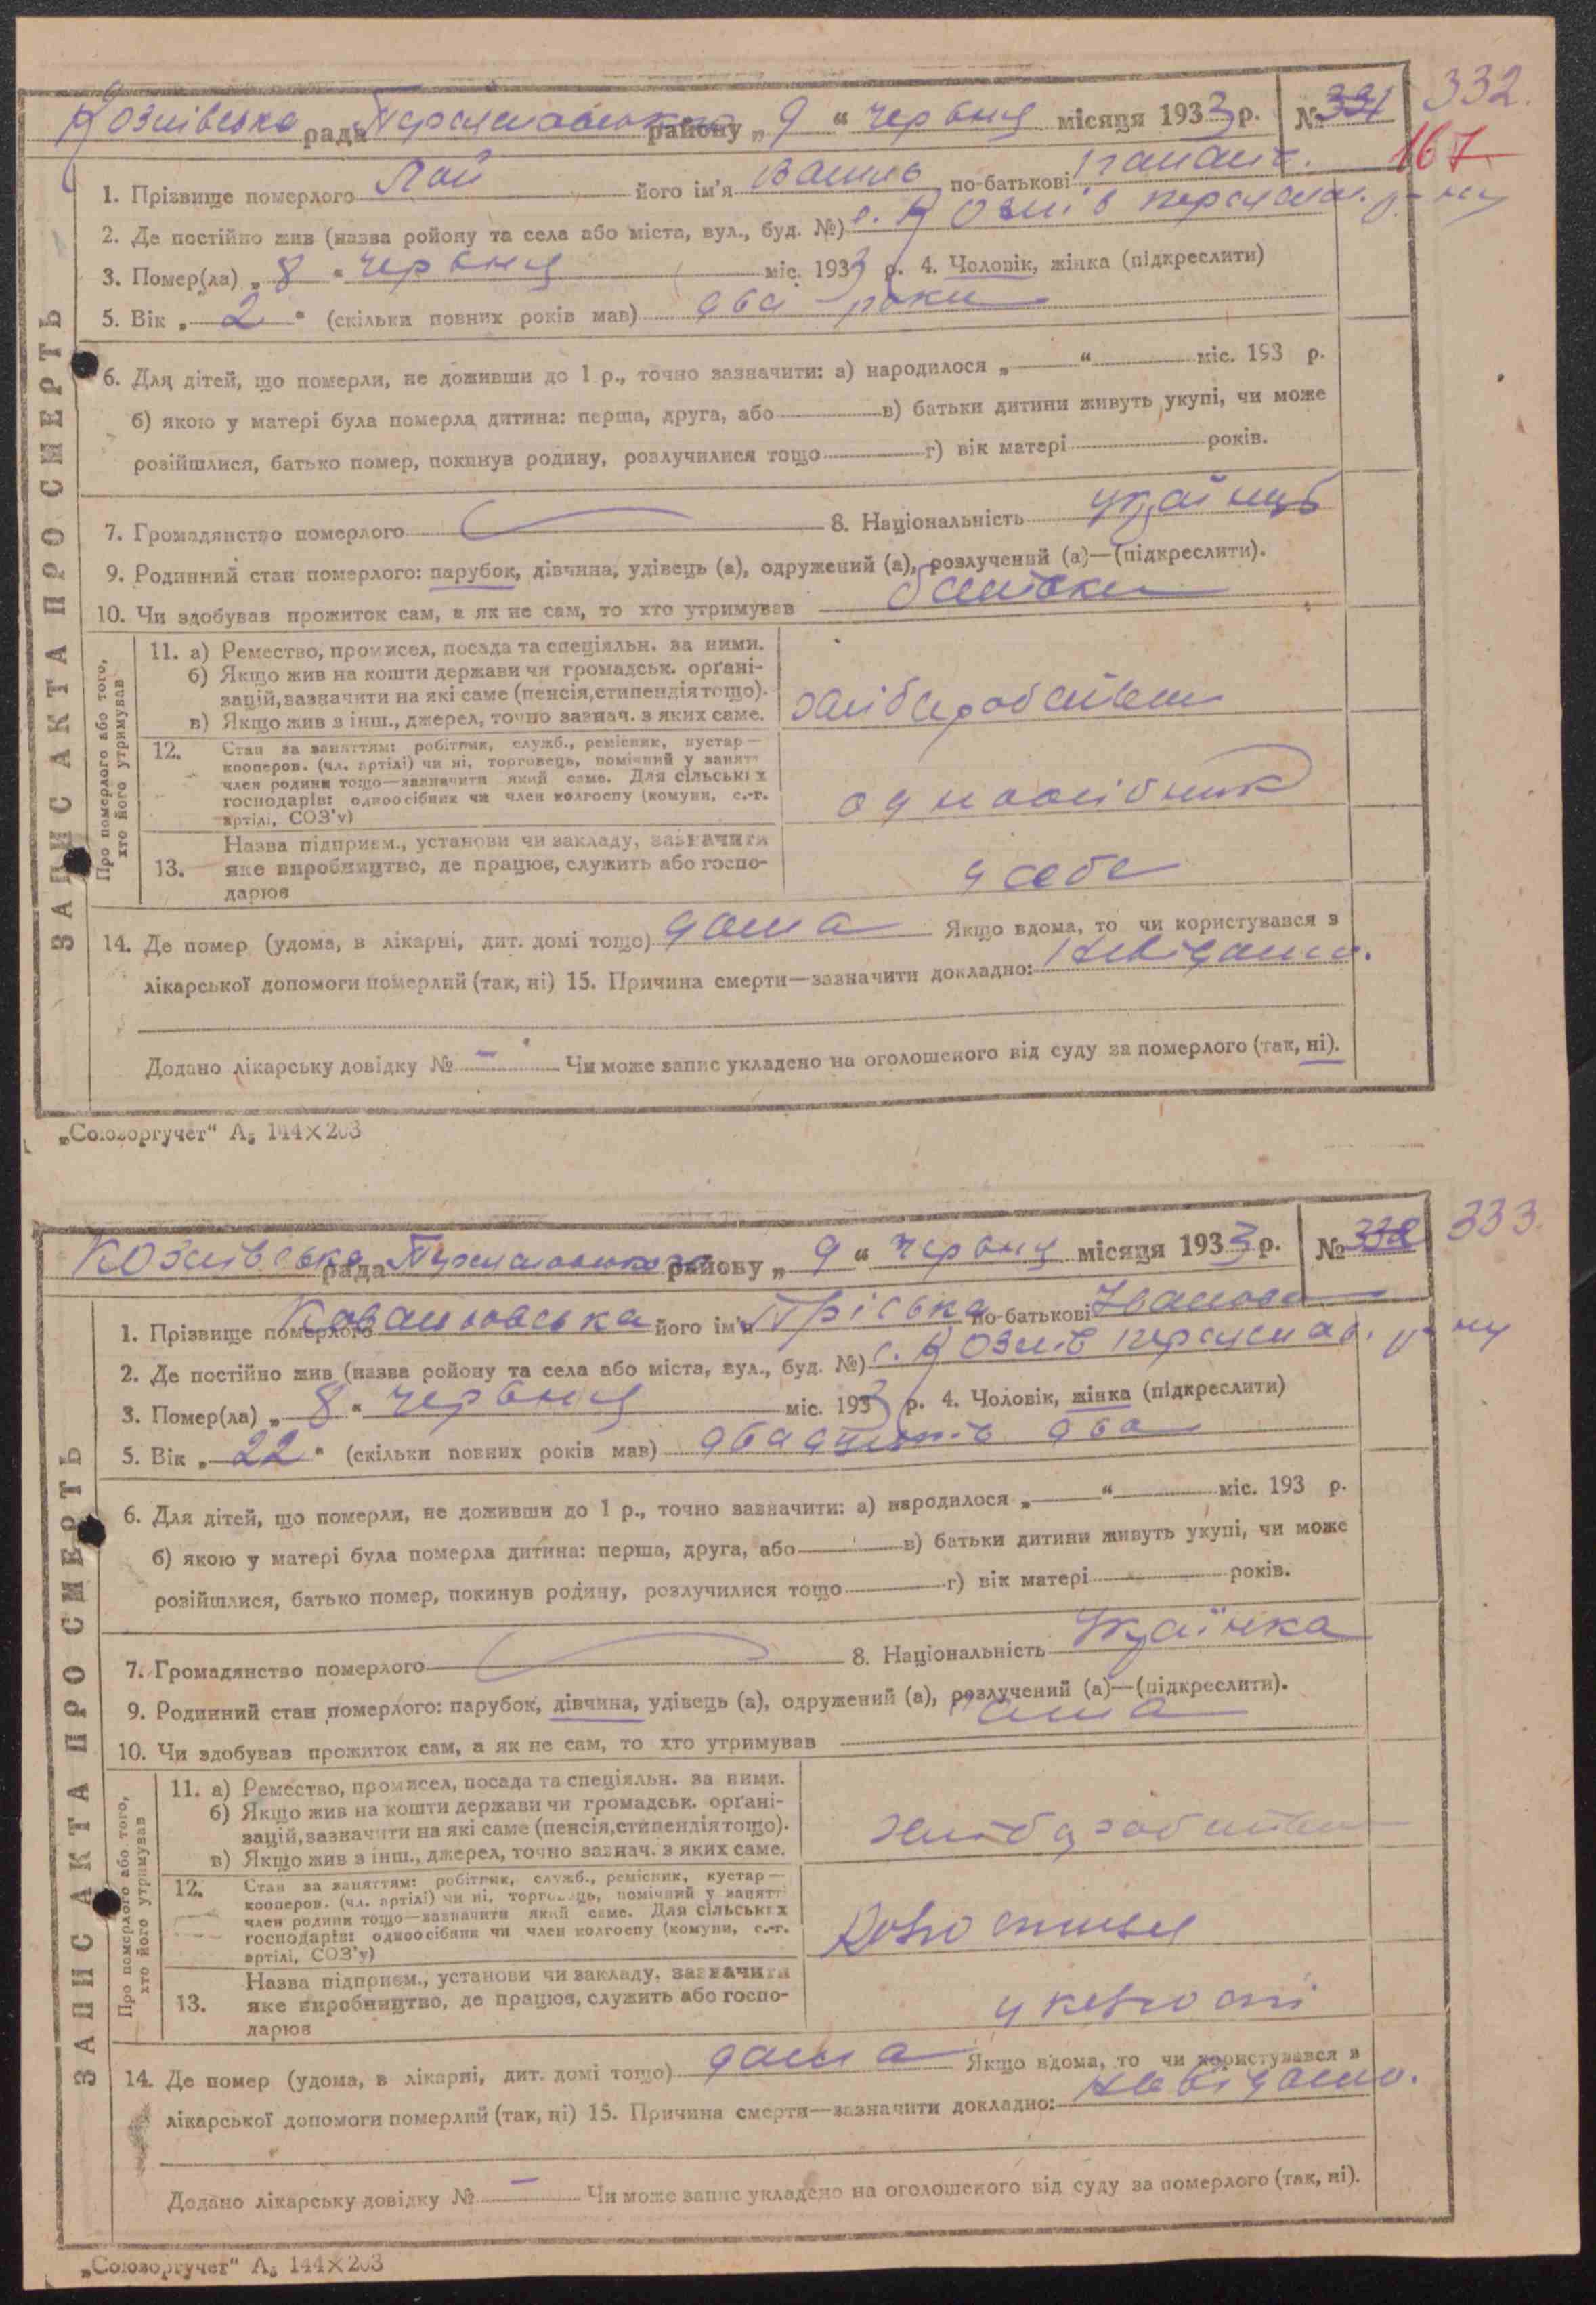 332.
Козлівська рада Переяславського району „ 9 “ червня місяця 1933 р. № 331
167
1. Прізвище померлого Лой його ім'я Василь по-батькові
2. Де постійно жив (назва ройону та села або міста, вул., буд. №) с. Козлів Переяслав. р-ну
3. Помер(ла) „ 8 “ червня міс. 1933 р. 4. Чоловік, жінка (підкреслити)
5. Вік „ 2 “ (скільки повних років мав) два роки
6. Для дітей, що померли, не доживши до 1 р., точно зазначити: а) народилося „ “ міс. 193 р.
б) якою у матері була померла дитина: перша, друга, або в) батьки дитини живуть укупі, чи може
розійшлися, батько помер, покинув родину, розлучилися тощо г) вік матері років.
7. Громадянство померлого 8. Національність українець
9. Родинний стан померлого: парубок, дівчина, удівець (а), одружений (а), розлучений (а)—(підкреслити).
10. Чи здобував прожиток сам, а як не сам, то хто утримував батьки
ЗАПИС АКТА ПРО СМЕРТЬ
Про померлого або того,
хто його утримував
11. а) Ремество, промисел, посада та спеціяльн. за ними.
б) Якщо жив на кошти держави чи громадськ. орґані-
зацій, зазначити на які саме (пенсія, стипендія тощо).
в) Якщо жив з інш., джерел, точно зазнач. з яких саме.
хліборобством
12. Стан за заняттям: робітник, служб., ремісник, кустар—
кооперов. (чл. артілі) чи ні, торговець, помічний у занятт
член родини тощо—зазначити який саме. Для сільських
господарів: одноосібник чи член колгоспу (комуни, с.-г.
артілі, СОЗ'у)
одноосібник
Назва підприєм., установи чи закладу, зазначити
13. яке виробництво, де працює, служить або госпо-
дарює
у себе
14. Де помер (удома, в лікарні, дит. домі тощо) дома Якщо вдома, то чи користувався з
лікарської допомоги померлий (так, ні) 15. Причина смерти—зазначити докладно: Невідомо.
Додано лікарську довідку № – Чи може запис укладено на оголошеного від суду за померлого (так, ні).
„Союзоргучет“ А₅ 144×203
333.
Козлівська рада Переяславського району „ 9 “ червня місяця 1933 р. № 332
1. Прізвище померлого його ім'я Пріська по-батькові Іванова
2. Де постійно жив (назва ройону та села або міста, вул., буд. №) с. Козлів Переяслав. р-ну
3. Помер(ла) „ 8 “ червня міс. 1933 р. 4. Чоловік, жінка (підкреслити)
5. Вік „ 22 “ (скільки повних років мав) два
6. Для дітей, що померли, не доживши до 1 р., точно зазначити: а) народилося „ “ міс. 193 р.
б) якою у матері була померла дитина: перша, друга, або в) батьки дитини живуть укупі, чи може
розійшлися, батько помер, покинув родину, розлучилися тощо г) вік матері років.
7. Громадянство померлого 8. Національність Українка
9. Родинний стан померлого: парубок, дівчина, удівець (а), одружений (а), розлучений (а)—(підкреслити).
10. Чи здобував прожиток сам, а як не сам, то хто утримував сама
ЗАПИС АКТА ПРО СМЕРТЬ
Про померлого або того,
хто його утримував
11. а) Ремество, промисел, посада та спеціяльн. за ними.
б) Якщо жив на кошти держави чи громадськ. орґані-
зацій, зазначити на які саме (пенсія, стипендія тощо).
в) Якщо жив з інш., джерел, точно зазнач. з яких саме.
12. Стан за заняттям: робітник, служб., ремісник, кустар—
кооперов. (чл. артілі) чи ні, торговець, помічний у занятті
член родини тощо—зазначити який саме. Для сільських
господарів: одноосібник чи член колгоспу (комуни, с.-г.
артілі, СОЗ'у)
Назва підприєм., установи чи закладу, зазначити
13. яке виробництво, де працює, служить або госпо-
дарює
у колгоспі
14. Де помер (удома, в лікарні, дит. домі тощо) дома Якщо вдома, то чи користувався з
лікарської допомоги померлий (так, ні) 15. Причина смерти—зазначити докладно: Невідомо.
Додано лікарську довідку № – Чи може запис укладено на оголошеного від суду за померлого (так, ні).
„Союзоргучет“ А₅ 144×203